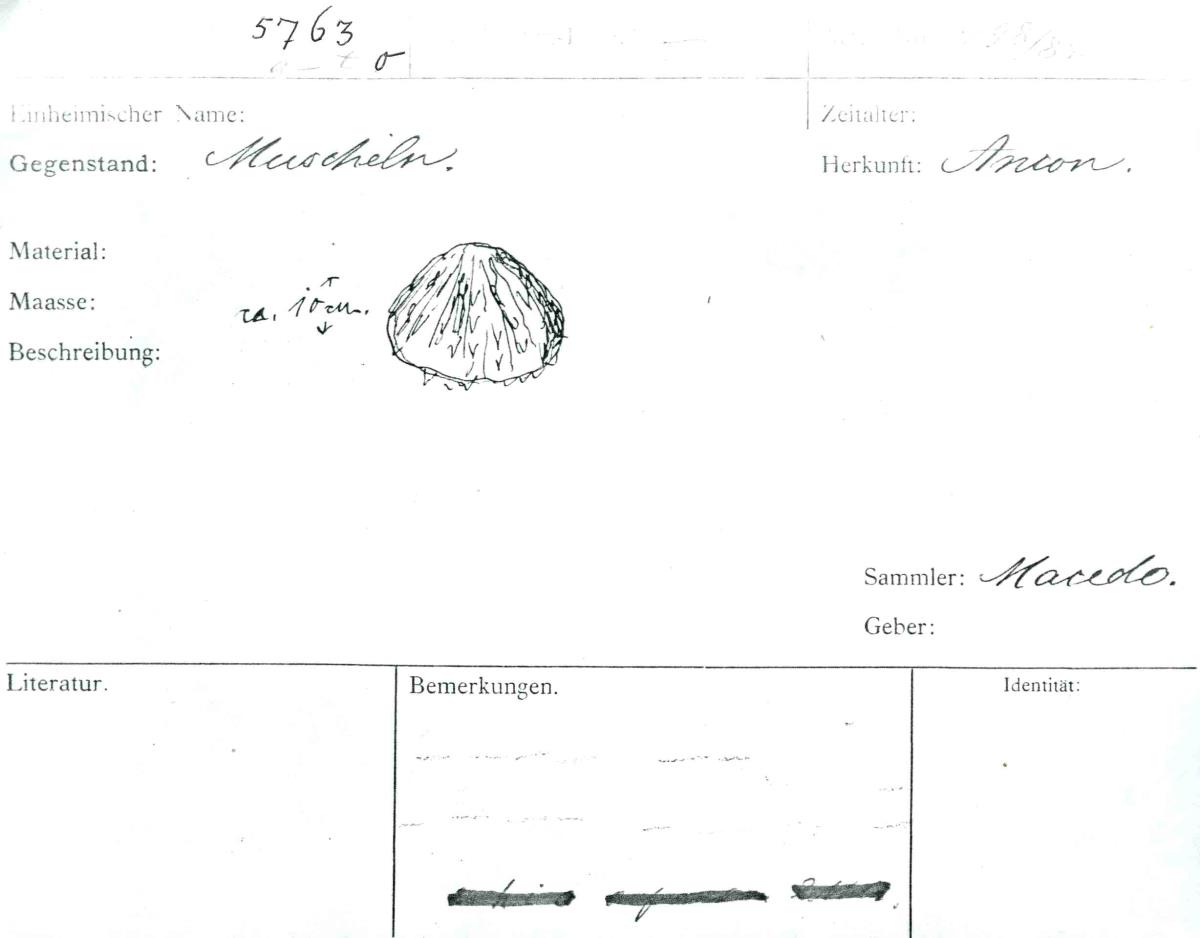 5763
a – t o
Einheimischer Name:
Zeitalter:
Gegenstand: Muscheln.
Herkunft: Ancon.
Material:
Maasse: ca. 10 cm.
Beschreibung:
Sammler: Macedo.
Geber:
Literatur.
Bemerkungen.
Identität: